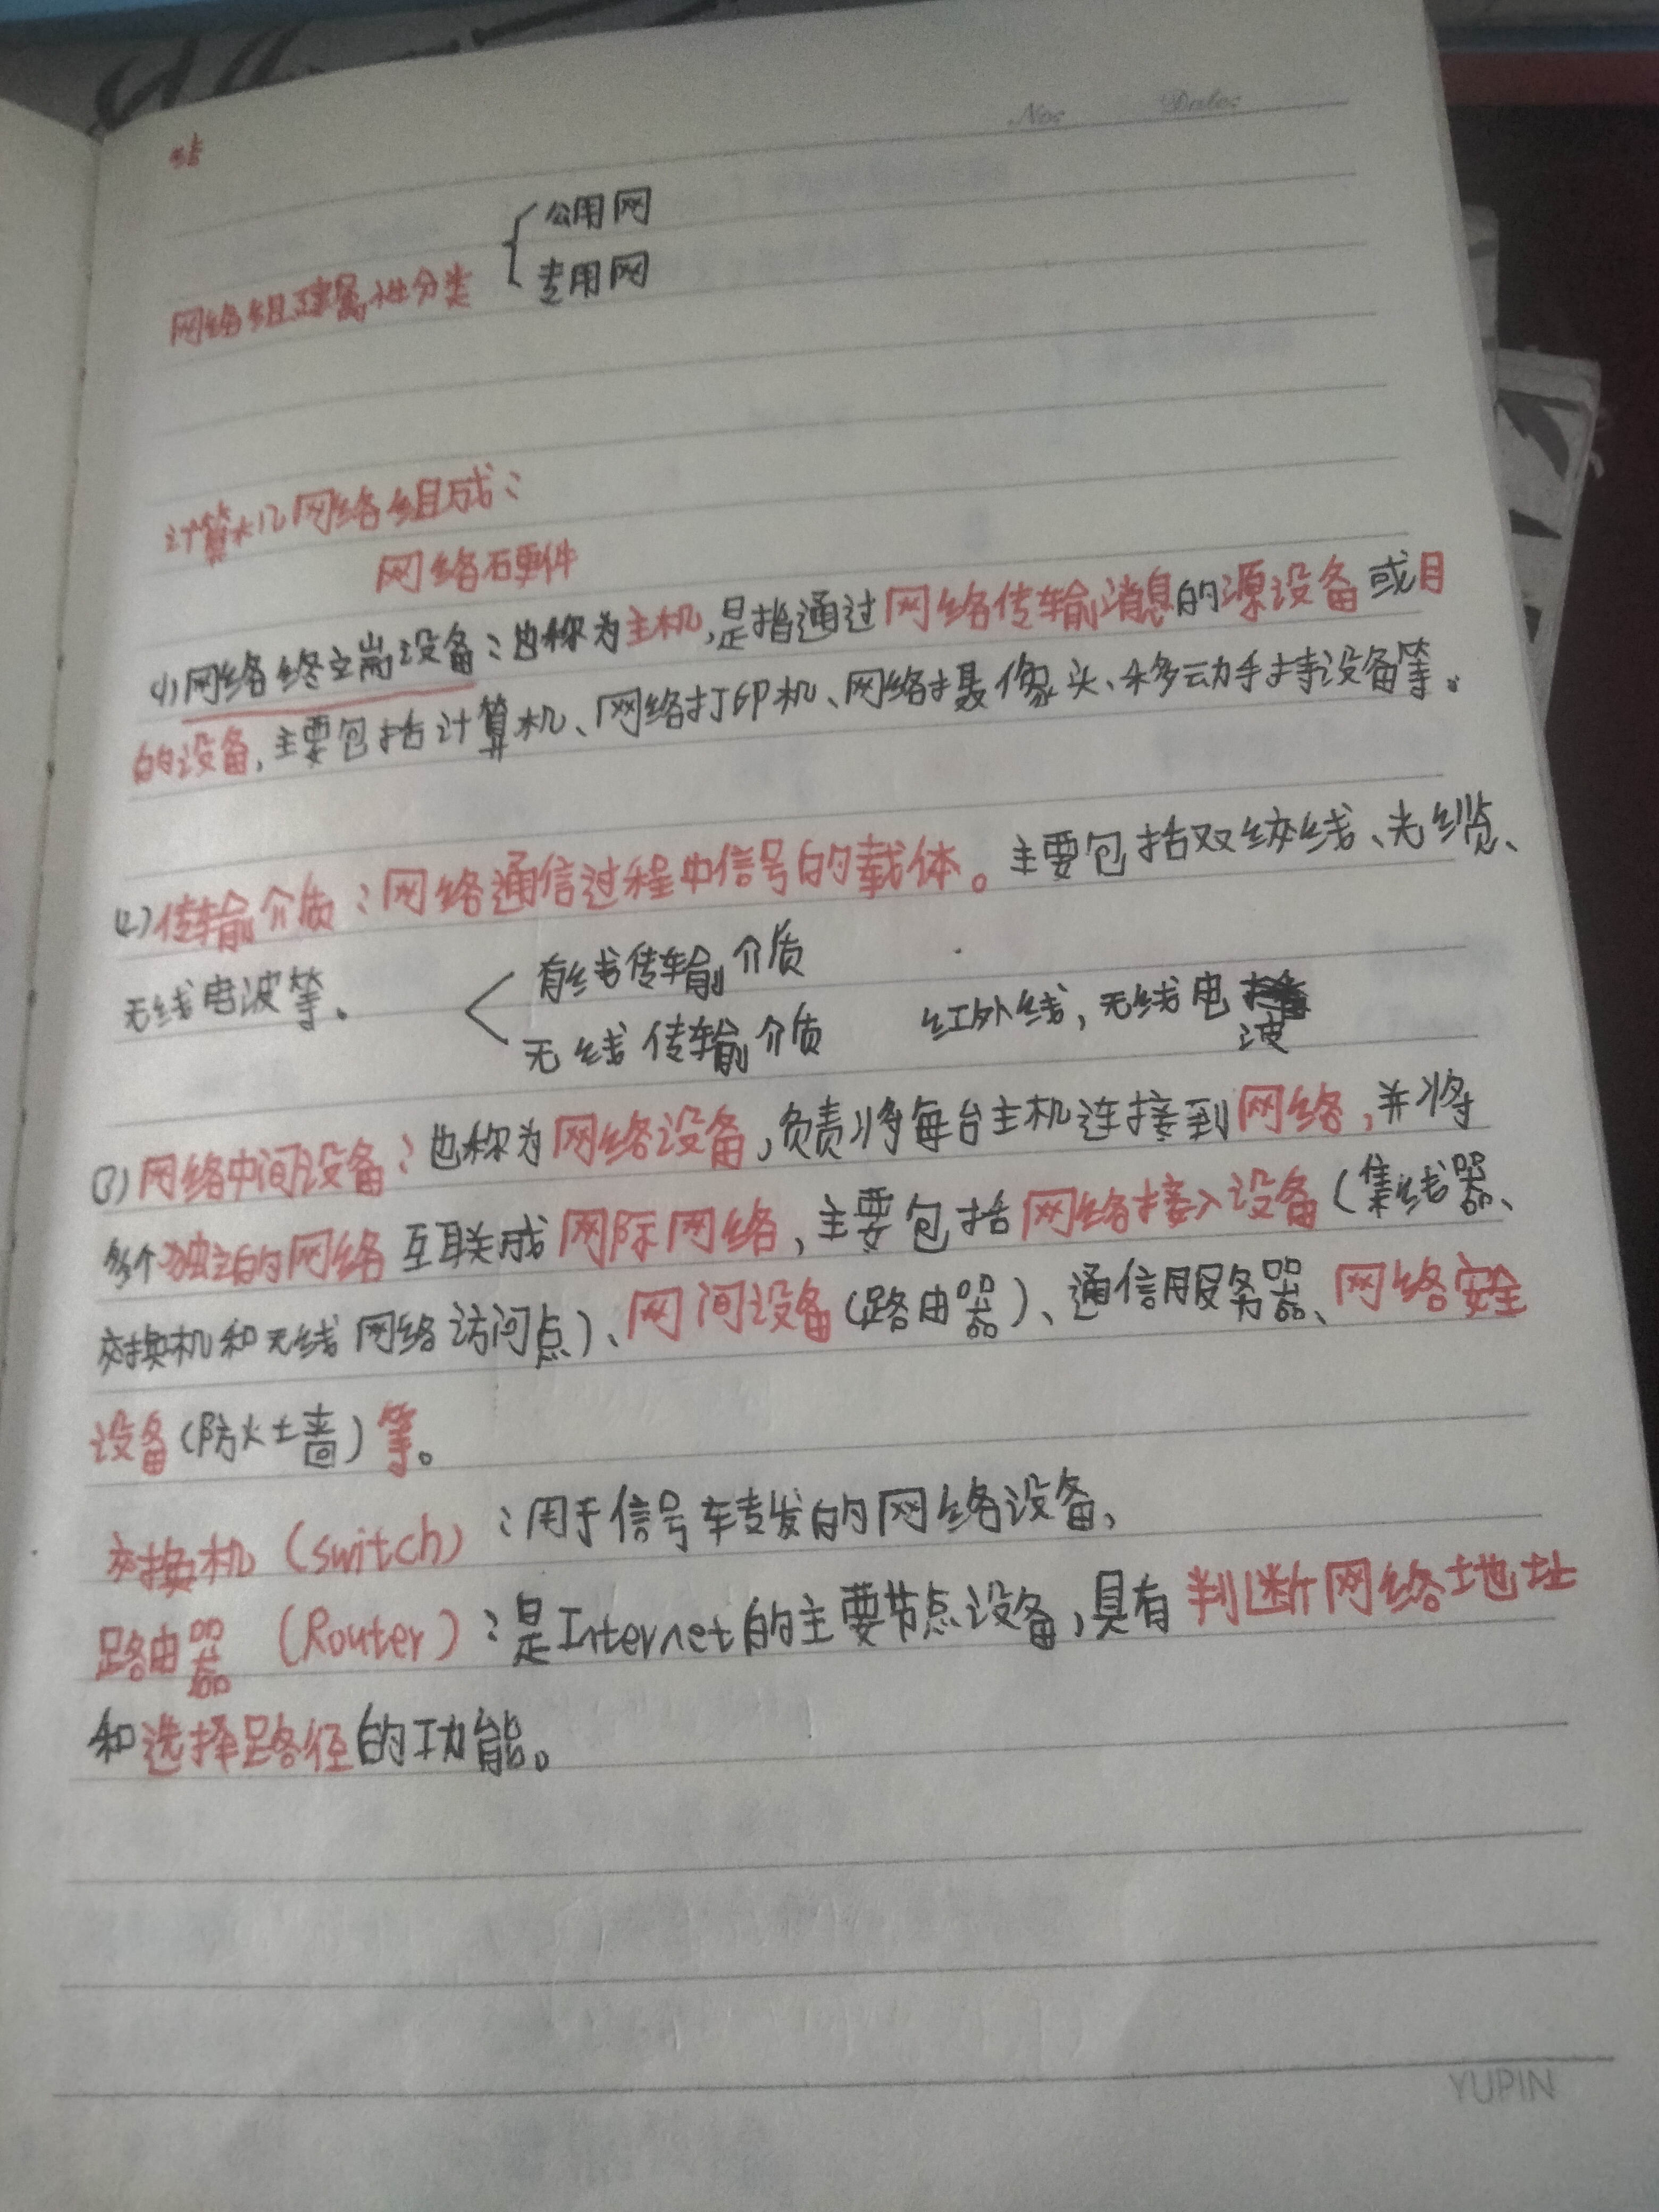 No:　　Date:
公用网
网络组建属性分类
专用网
计算机网络组成：
网络硬件
(1)网络终端设备：也称为主机,是指通过网络传输消息的源设备或目
的设备,主要包括计算机、网络打印机、网络摄像头、移动手持设备等。
(2)传输介质：网络通信过程中信号的载体。主要包括双绞线、光缆、
无线电波等。
有线传输介质
无线传输介质　　红外线,无线电
波
(3)网络中间设备：也称为网络设备,负责将每台主机连接到网络,并将
多个独立的网络互联成网际网络,主要包括网络接入设备(集线器、
交换机和无线网络访问点)、网间设备(路由器)、通信服务器、网络安全
设备(防火墙)等。
交换机(switch)：用于信号转发的网络设备,
路由器(Router)：是Internet的主要节点设备,具有判断网络地址
和选择路径的功能。
YUPIN